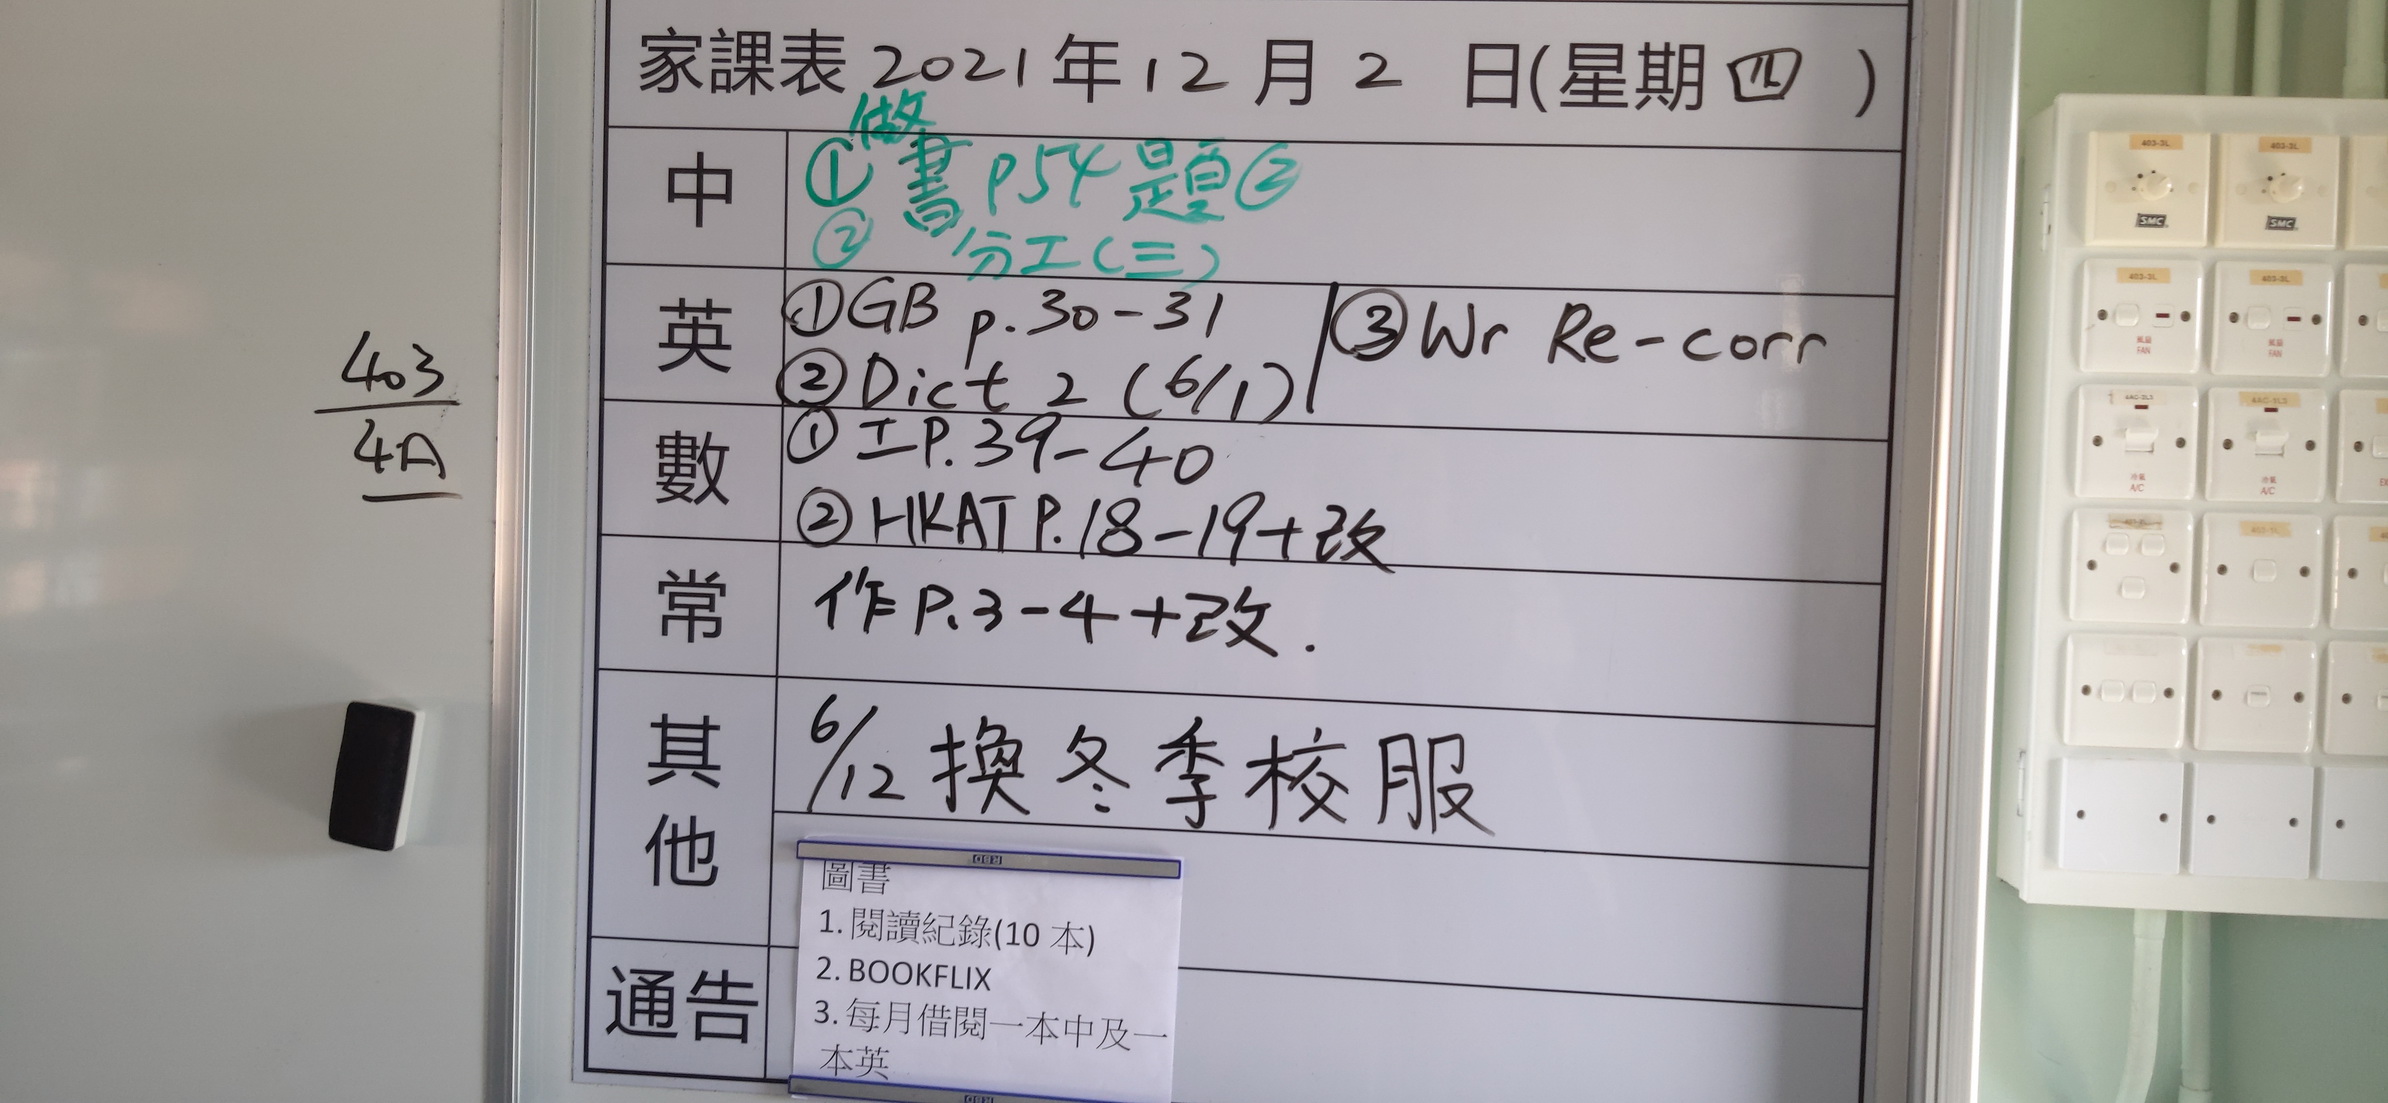 家課表 2021年12月2日(星期四)
中
做
①書 p54 題②
② 分工(三)
英
①GB p.30-31
②Dict 2 (6/1)
③Wr Re-corr
數
①工P.39-40
②HKAT P.18-19+改
常
作P.3-4+改.
其他
6/12 換冬季校服
圖書
1. 閱讀紀錄(10 本)
2. BOOKFLIX
3. 每月借閱一本中及一
本英
通告
403
4A
403-3L
403-3L
SMC
SMC
403-3L
403-3L
風扇
FAN
風扇
FAN
冷氣
A/C
冷氣
A/C